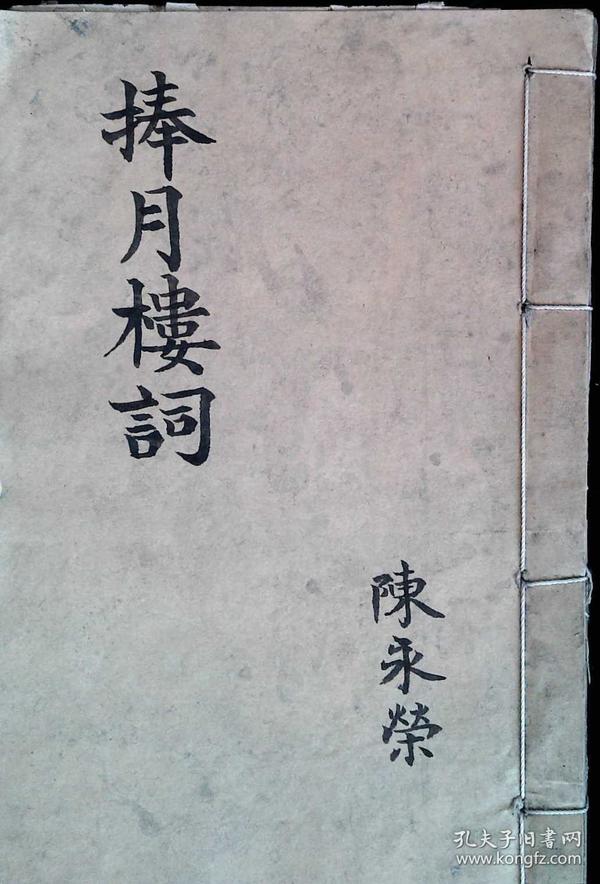 捧月樓詞
陳永榮
孔夫子旧書网
www.kongfz.com